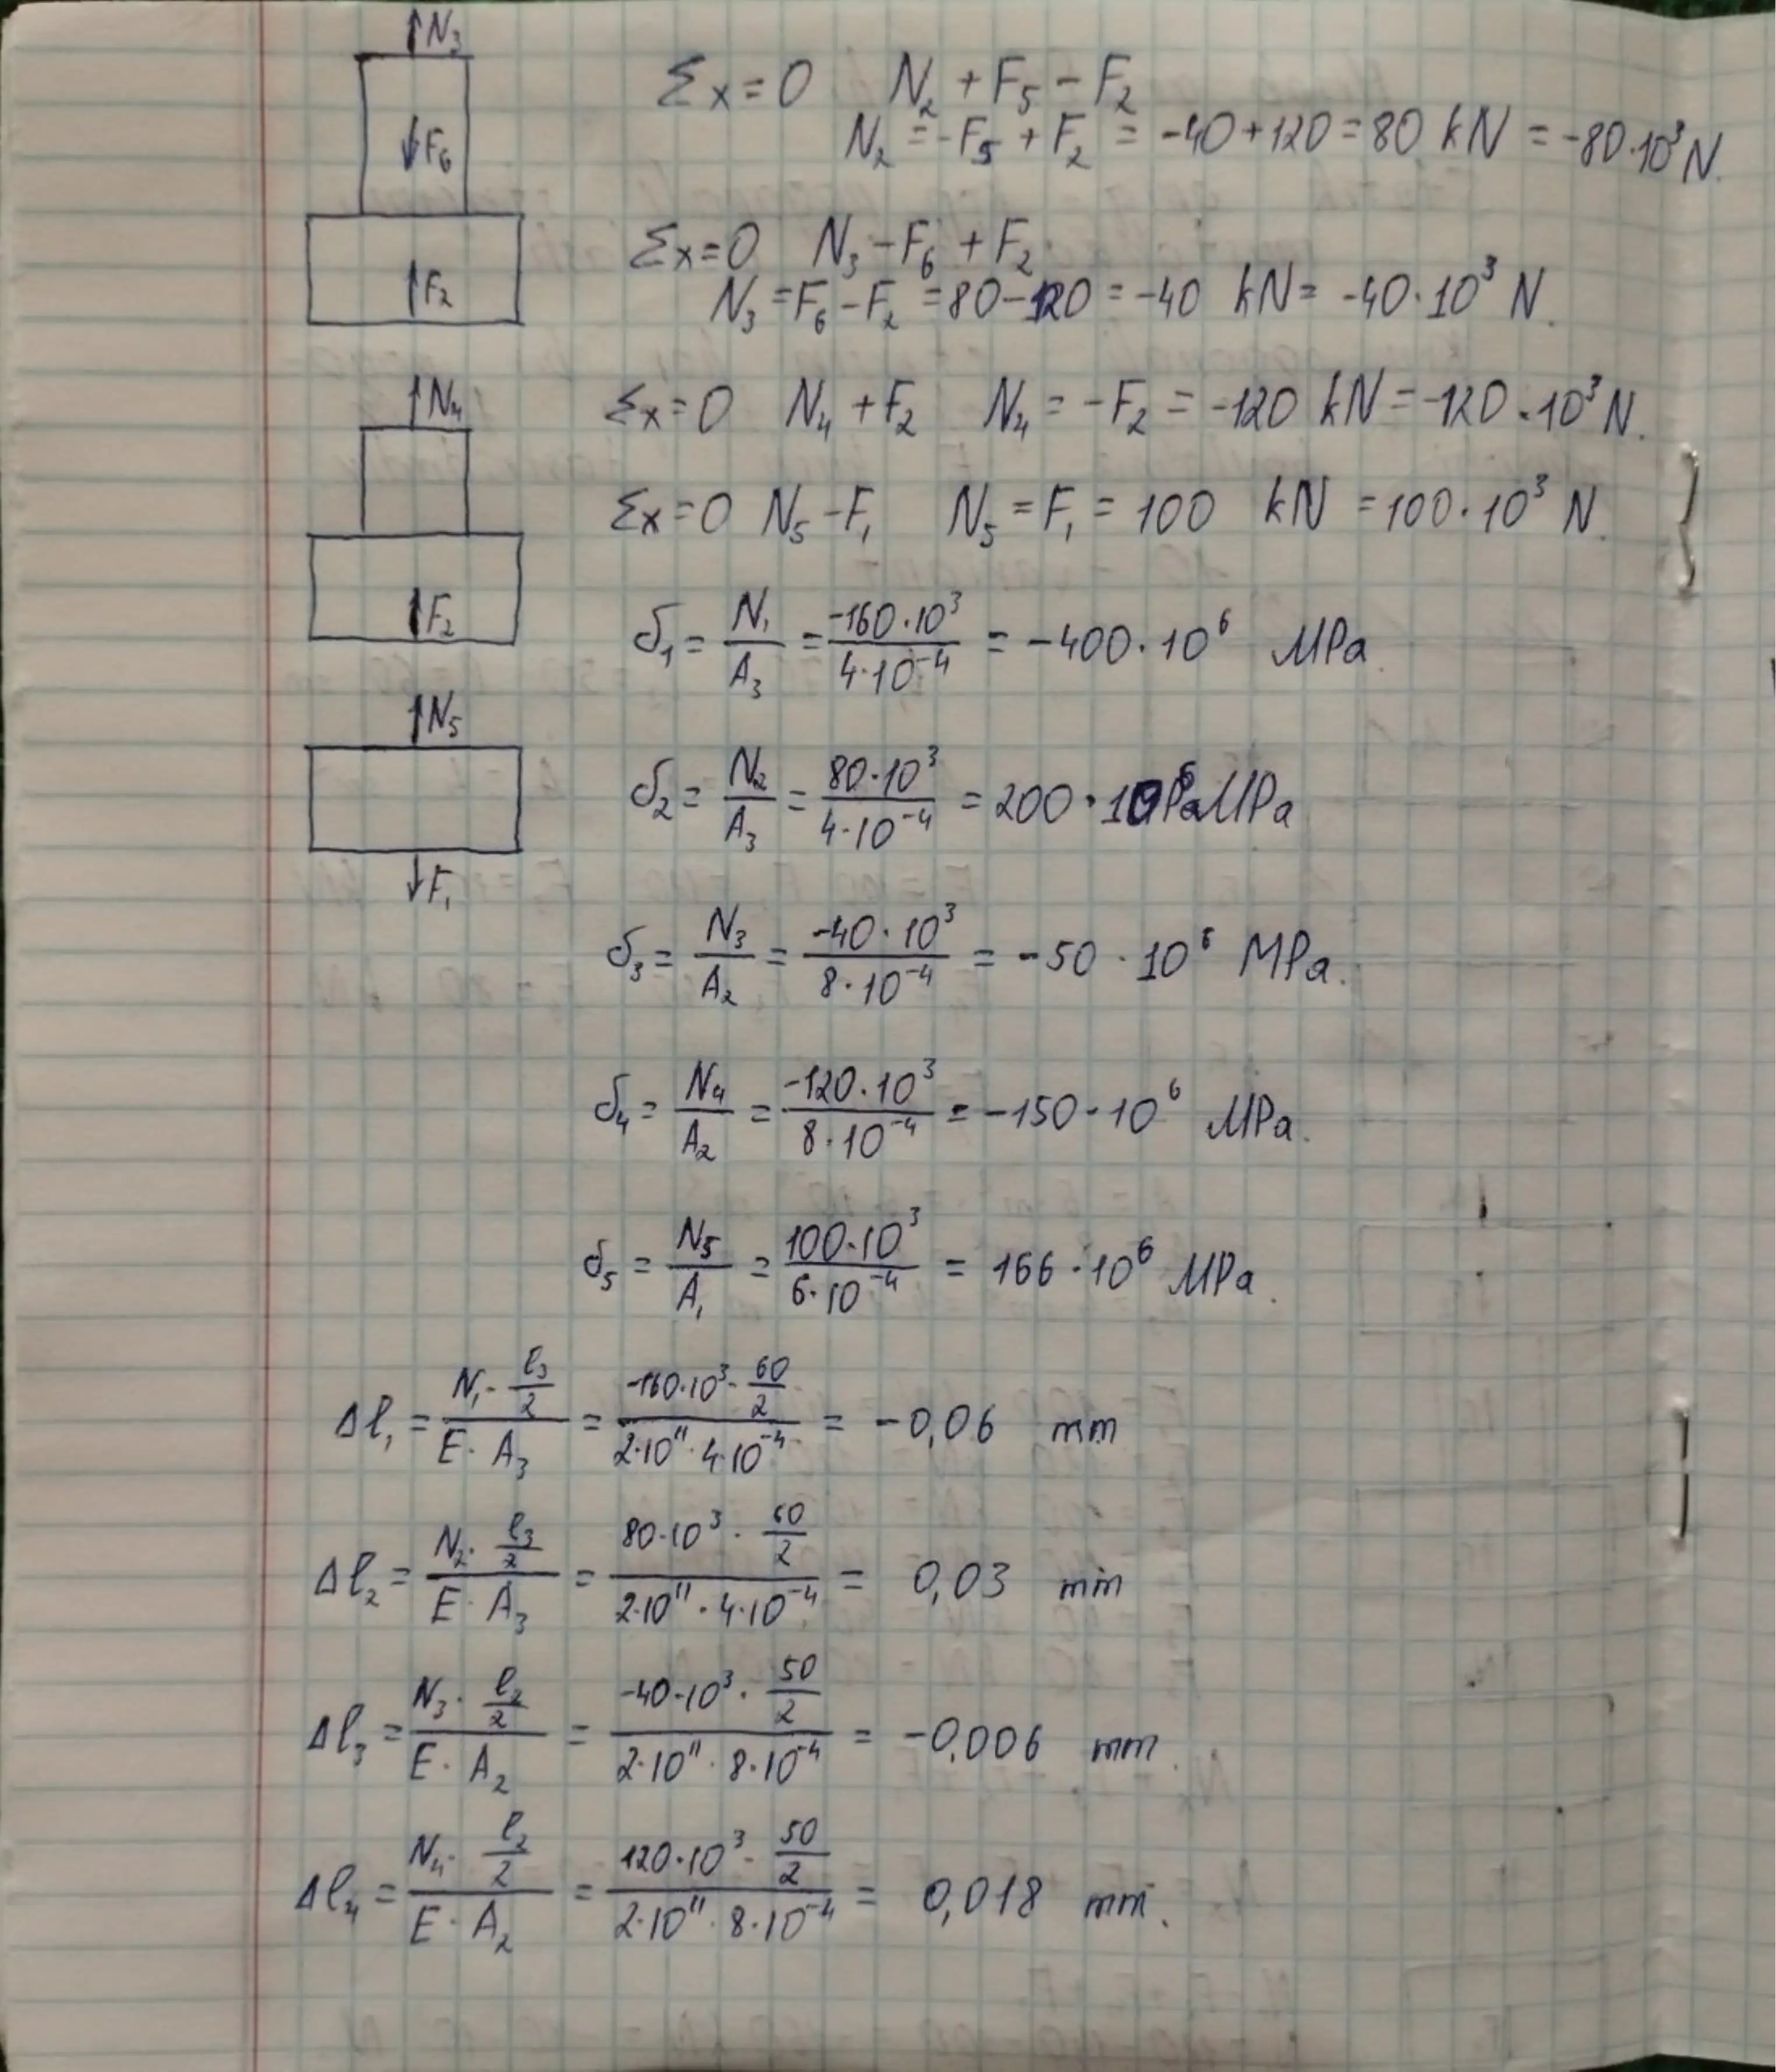 ↑N₃
Σx=0 N₂ + F₅ - F₂
N₂ = -F₅ + F₂ = -40+120 = 80 kN = -80·10³ N.
↓F₆
Σx=0 N₃ - F₆ + F₂
N₃ = F₆ - F₂ = 80-120 = -40 kN = -40·10³ N.
↑F₂
↑N₄
Σx=0 N₄ + F₂ N₄ = -F₂ = -120 kN = -120·10³ N.
Σx=0 N₅ - F₁ N₅ = F₁ = 100 kN = 100·10³ N.
↑F₂
δ₁ = N₁/A₃ = -160·10³/4·10⁻⁴ = -400·10⁶ MPa
↑N₅
δ₂ = N₂/A₃ = 80·10³/4·10⁻⁴ = 200·10⁶ Pa MPa
↓F₁
δ₃ = N₃/A₂ = -40·10³/8·10⁻⁴ = -50·10⁶ MPa.
δ₄ = N₄/A₂ = -120·10³/8·10⁻⁴ = -150·10⁶ MPa.
δ₅ = N₅/A₁ = 100·10³/6·10⁻⁴ = 166·10⁶ MPa.
Δl₁ = N₁·l₃/2 / E·A₃ = -160·10³·60/2 / 2·10¹¹·4·10⁻⁴ = -0,06 mm
Δl₂ = N₂·l₃/2 / E·A₃ = 80·10³·60/2 / 2·10¹¹·4·10⁻⁴ = 0,03 mm
Δl₃ = N₃·l₂/2 / E·A₂ = -40·10³·50/2 / 2·10¹¹·8·10⁻⁴ = -0,006 mm.
Δl₄ = N₄·l₂/2 / E·A₂ = 120·10³·50/2 / 2·10¹¹·8·10⁻⁴ = 0,018 mm.